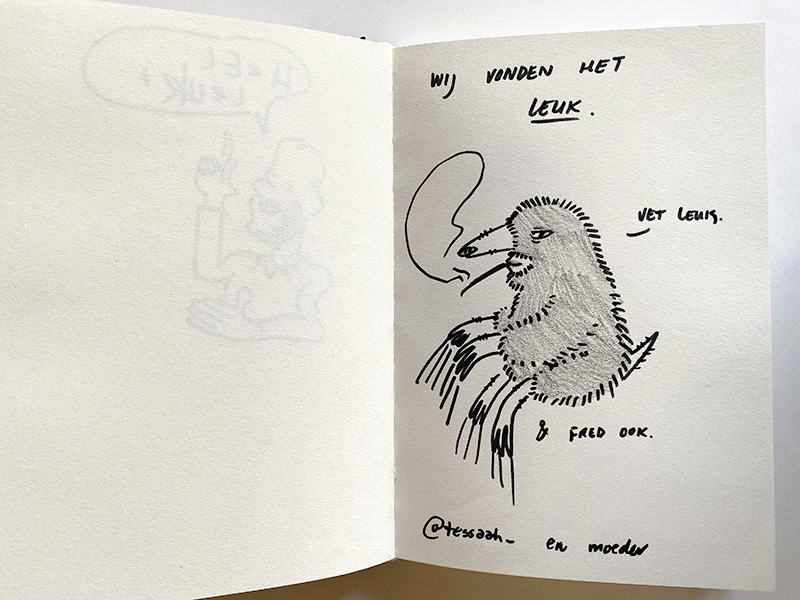 HEEL
LEUK!
WIJ VONDEN HET
LEUK.
VET LEUK.
& FRED OOK.
@tessaah_ en moeder